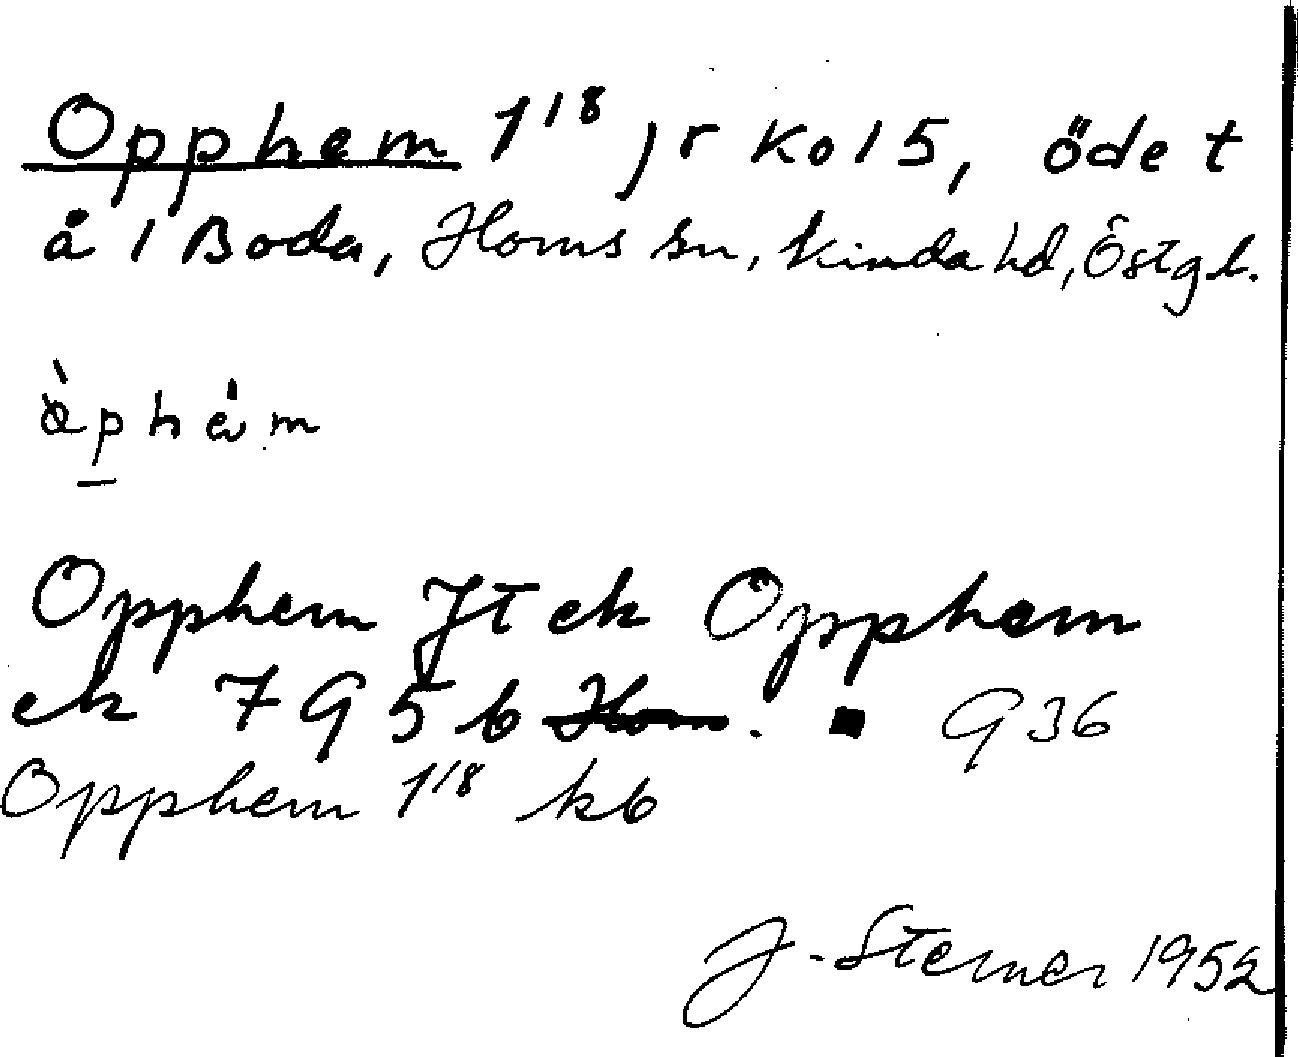 Opphem 1¹⁸ jr ko15, ödet
å 1 Boda, Horns sn, Kinda hd, Östgl.
òphèm
Opphem Jt ek Opphem
ek 7956 Horn. 936
Opphem 1¹⁸ kb
J. Sterner 1952